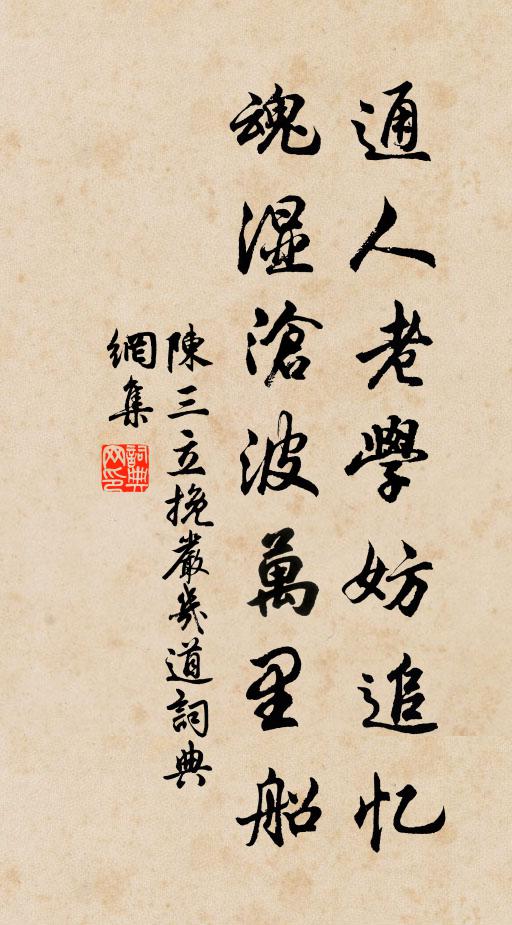 通人老學妨追忆
魂湿滄波萬里船
陳三立挽嚴幾道詞典
網集
詞典網印